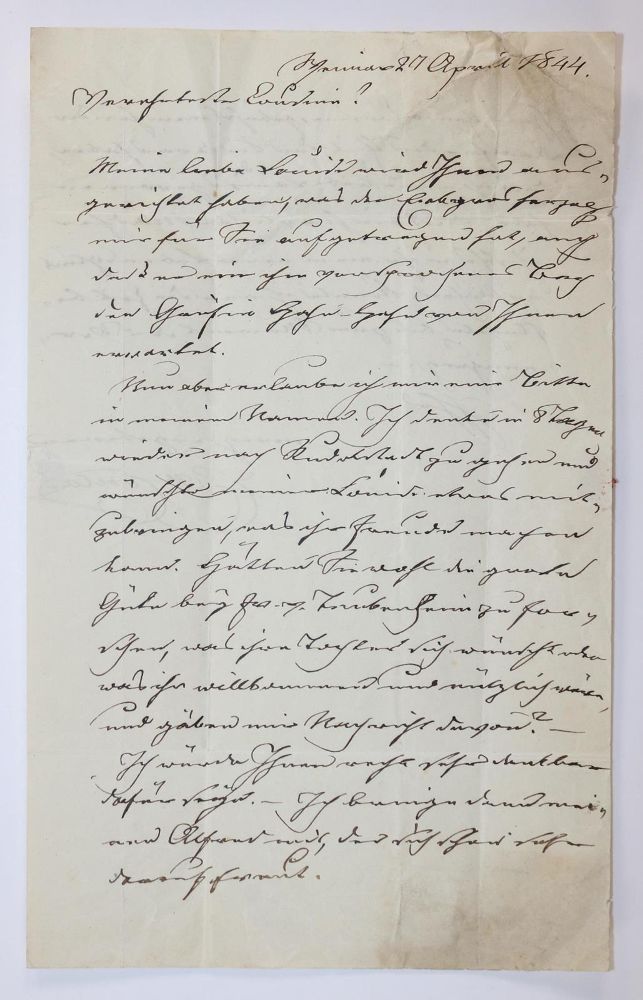 Weimar 27 April 1844.
Verehrteste Cousine!
Meine liebe Louise wird Ihnen aus-
gerichtet haben, was der Erbgrosherzog
mir für Sie aufgetragen hat, auch
daß er ein ihm versprochenes Buch
der Gräfin Hahn-Hahn von Ihnen
erwartet.
Nun aber erlaube ich mir eine Bitte
in meinem Namen. Ich denke in 8 Tagen
wieder nach Rudolstadt zu gehen und
wünschte meiner Louise etwas mit-
zubringen, was ihr Freude machen
kann. Hätten Sie wohl die große
Güte bey Fr. v. Teubenheim zu for-
schen, was ihre Tochter sich wünscht oder
was ihr willkommen und nützlich wäre,
und gäben mir Nachricht davon? —
Ich würde Ihnen recht sehr dankbar
dafür seyn. — Ich bringe dann mei-
nen Alfred mit, der sich schon sehr
darauf freut.